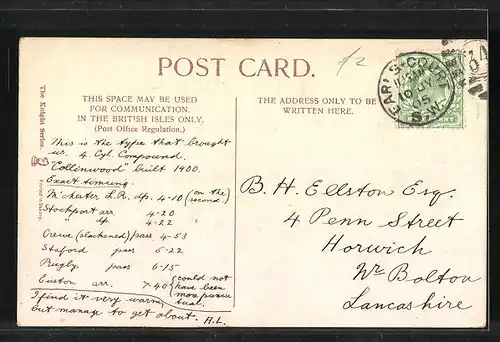 POST CARD.
THIS SPACE MAY BE USED
FOR COMMUNICATION.
IN THE BRITISH ISLES ONLY.
(Post Office Regulation.)
THE ADDRESS ONLY TO BE
WRITTEN HERE.
The Knight Series
This is the type that brought
us. 4 Cyl. Compound.
"Collinwood" built 1900.
Exact timing
M'chester L.R. dp. 4-10 (on the second.)
Stockport arr 4-20
dp. 4-22
Crewe (slackened) pass 4-53
Staford pass 5-22
Rugby pass 6-15
Euston arr 7-40 {could not
have been
more punc
tual.
I find it very warm
but manage to get about. H.L.
B. H. Ellston Esq.
4 Penn Street
Horwich
Nr Bolton
Lancashire
EARLS COURT
05
S.W.